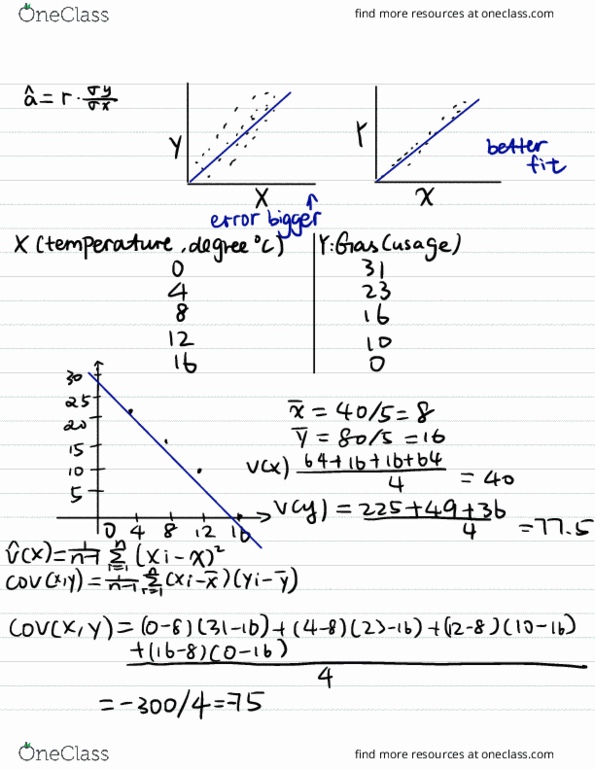 OneClass
find more resources at oneclass.com
â = r · σy/σx
Y
X
error bigger
Y
x
better
fit
X (temperature, degree °C) | Y: Gas (usage)
0 31
4 23
8 16
12 10
16 0
30
25
20
15
10
5
0 4 8 12 16
x̄ = 40/5 = 8
ȳ = 80/5 = 16
V(x) (64+16+16+64)/4 = 40
V(y) = (225+49+36)/4 = 77.5
v̂(x) = 1/(n-1) Σ(i=1 to n) (xi - x)²
COV(x,y) = 1/(n-1) Σ(i=1 to n) (xi - x̄)(yi - ȳ)
COV(X,Y) = (0-8)(31-16)+(4-8)(23-16)+(12-8)(10-16)
+(16-8)(0-16)
4
= -300/4 = 75
OneClass
find more resources at oneclass.com